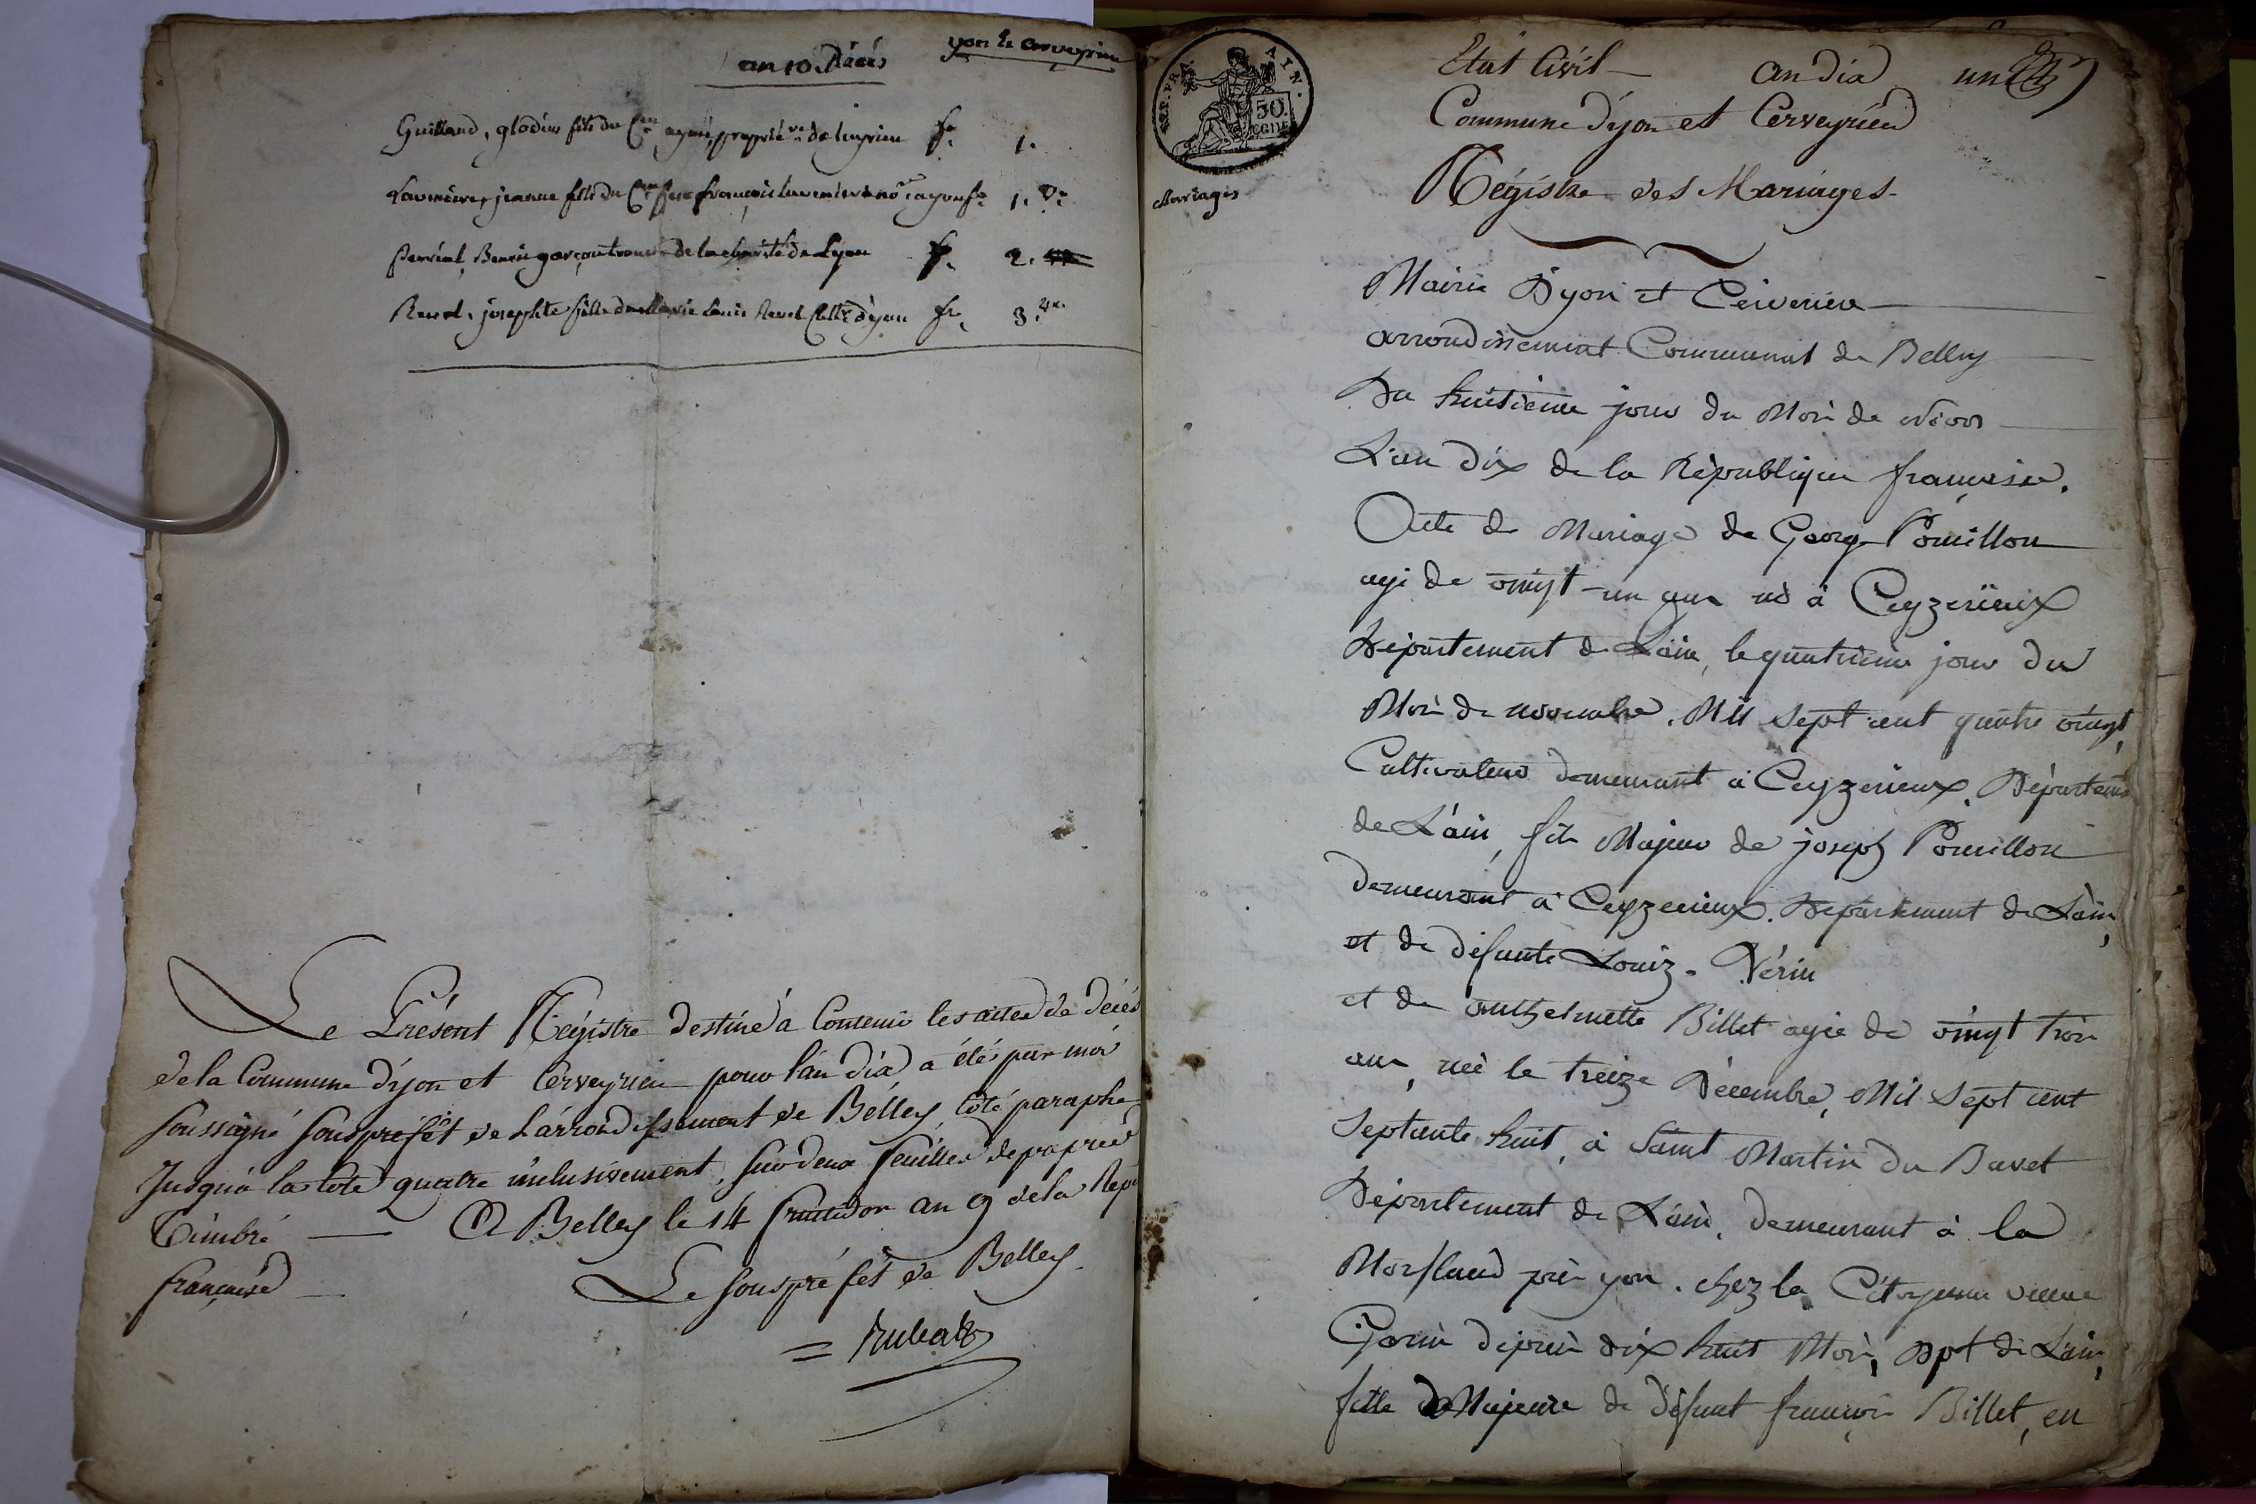 an 10. Décés
yon et cerveyrieu
Guilland, glodius fils du Cen propriére de luyrieu fo. 1.
Laverniere, jeanne fille du Cen feu françois Laverniere a yon fo. 1. Vo.
Benoit garçon trouvé de la charité de Lyon fo. 2.
Revel, josephte fille de Marie Louis Revel d'yon fo. 3. Vo.
Le Présent Régistre destiné à Contenir les actes de décés
de la Commune d'yon et Cerveyrieu pour l'an dix a été par moi
soussigné souspréfêt de L'arrondissement de Belley, coté paraphé
Jusqu'à la cote quatre inclusivement, sur deux feuilles de papier
Timbré — A Belley le 14 fructidor an 9 de la Repu
française —
Le souspréfêt de Belley
= Rubat
REP. FRA. AIN.
50.
CGMES
Mariages
Etat Civil — an dix un
Commune d'yon et Cerveyrieu
Régistre des Mariages
Mairie D'yon et Cerverieu
arrondissement Communal de Belley
Du huitième jour du Mois de Nivos
L'an dix de la République française.
Acte de Mariage de George Pomillon
agé de vingt-un ans né à Ceyzerieux
Département de L'ain, le quatrieme jour du
Mois de novembre. Mil sept cent quatre vingt,
Cultivateur demeurant à Ceyzerieux. Département
de L'ain, fils Majeur de joseph Pomillon
demeurant à Ceyzerieux. Département de L'ain,
et de défunte Louiz. Vérin
et de anthelmette Billet agée de vingt trois
ans, née le treize Décembre, Mil sept cent
septante huit, à Saint Martin du Bavet
Département de L'ain, demeurant à la
Morflaud près yon. chez la Citoyenne veuve
Gorin depuis dix huit Mois, Dpt de L'ain,
fille Majeure de défunt françois Billet, en